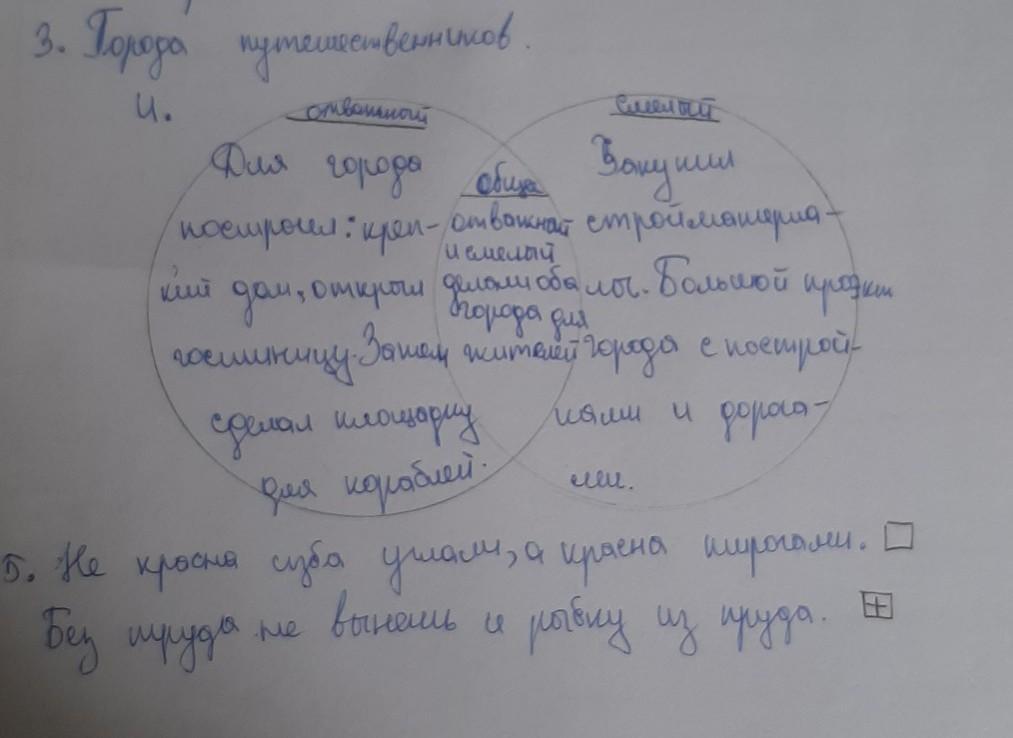 3. Города путешественников.
4.
отважный
Для города
построил: креп-
кий дом, открыл
гостиницу. Затем
сделал площадку
для кораблей.
общее
отважный
и смелый
делали оба
города для
жителей
смелый
Закупил
стройматериа-
лы. Большой проэкт
города с построй-
ками и дорога-
ми.
5. Не красна изба углами, а красна пирогами. □
Без труда не вынешь и рыбку из пруда. ⊞